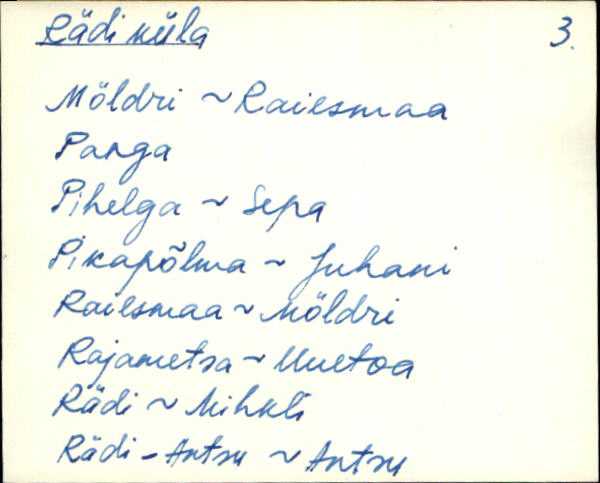 Rädi küla 3.
Möldri ~ Railsmaa
Panga
Pihelga ~ Sepa
Pikapõlma ~ Juhani
Railsmaa ~ Möldri
Rajametsa ~ Uuetoa
Rädi ~ Mihkli
Rädi-Antsu ~ Antsu